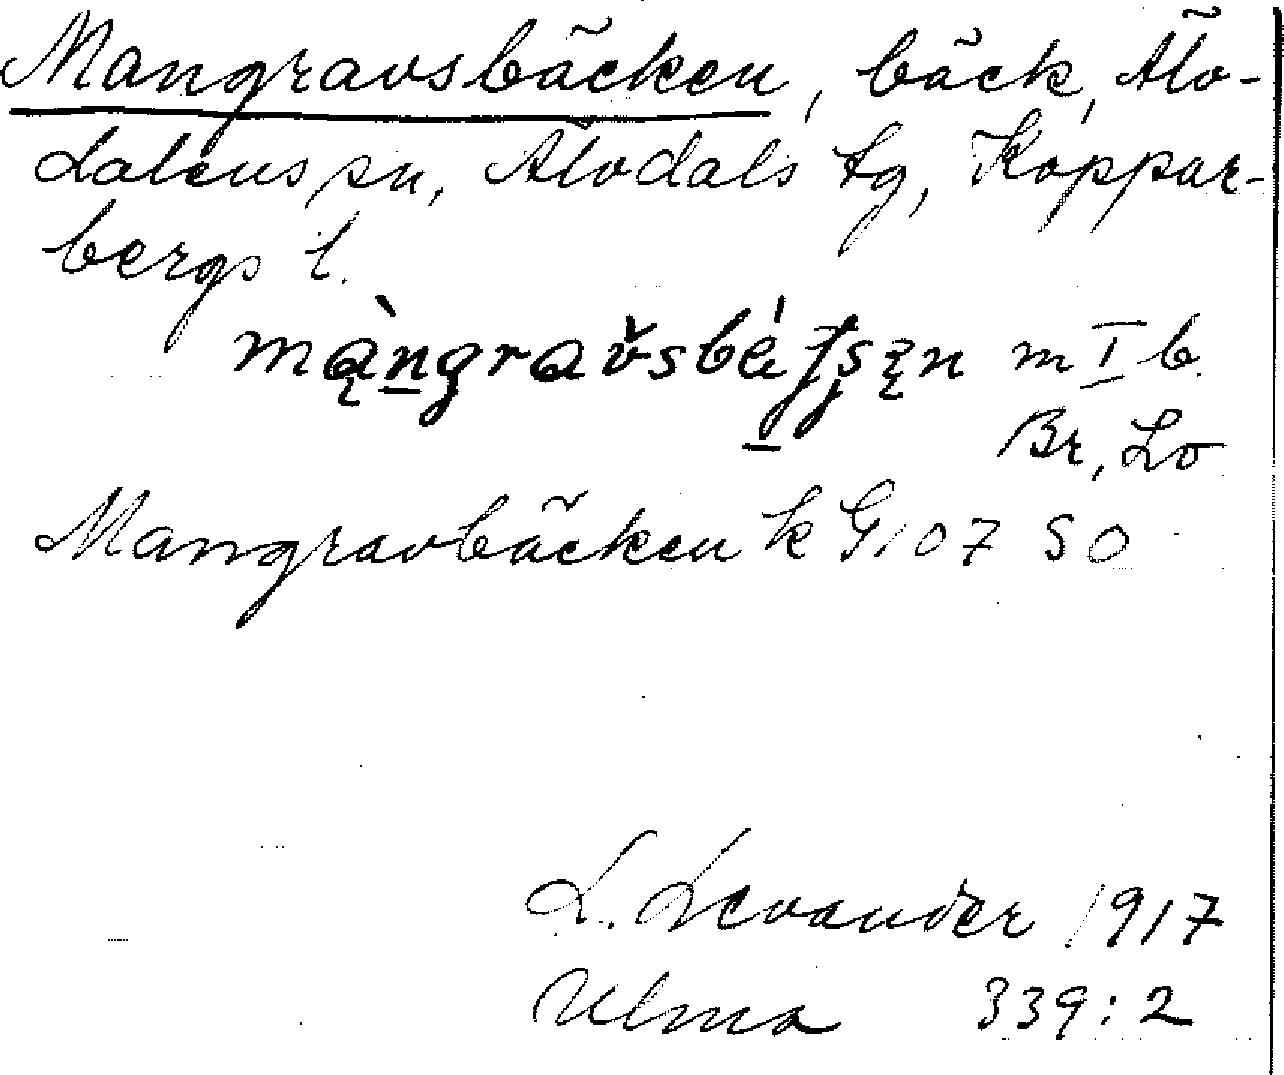 Mangravsbäcken, bäck, Älv-
dalens sn, Älvdals tg, Koppar-
bergs l.
m I b.
Br, Lo
Mangravbäcken k G 107 SO
L. Levander 1917
Ulma 339:2